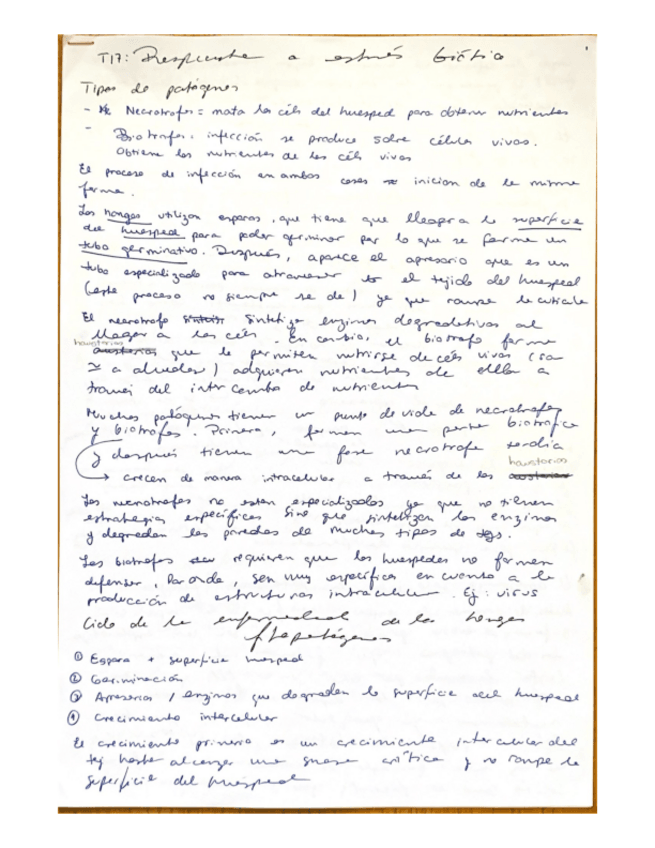 T17: Respuesta a estrés biótico
Tipos de patógenos
- Necrotrofos = mata las céls del huesped para obtener nutrientes
- Biotrofos: infección se produce sobre células vivas.
Obtiene los nutrientes de las céls vivas
El proceso de infección en ambos casos inician de la misma
forma.
Los hongos utilizan esporas, que tiene que llegar a la superficie
del huesped para poder germinar por lo que se forma un
tubo germinativo. Después, aparece el apresorio que es un
tubo especializado para atravesar el tejido del huespel
(este proceso no siempre se da) ya que rompe la cutícula
El necrotrofo sintetiza enzimas degradativas al
llegar a las céls. En cambio, el biotrofo forma
haustorios que le permiten nutrirse de céls vivas (son
≃ a almohadas) adquieren nutrientes de ellas a
través del intercambio de nutrientes
Muchos patógenos tienen un punto de vida de necrotrofos
y biotrofos. Primero, forman una parte biotrofica
y después tienen una fase necrotrofa tardía
→ crecen de manera intracelular a través de los haustorios
Los necrotrofos no estan especializados ya que no tienen
estrategias específicas sino que sintetizan las enzimas
y degradan las paredes de muchos tipos de
Los biotrofos requieren que los huespedes no formen
defensas, Por onde, sen muy específicos en cuento a la
producción de estructuras intracelular. Ej: virus
Ciclo de la enfermedad de los hongos
fitopatógenos
① Espora + superficie huesped
② Germinación
③ Apresorios / enzimas que degradan la superficie del huesped
④ Crecimiento intercelular
El crecimiento primero es un crecimiento intercelular del
tej hasta alcanzar una masa crítica y no rompe la
superficie del huesped